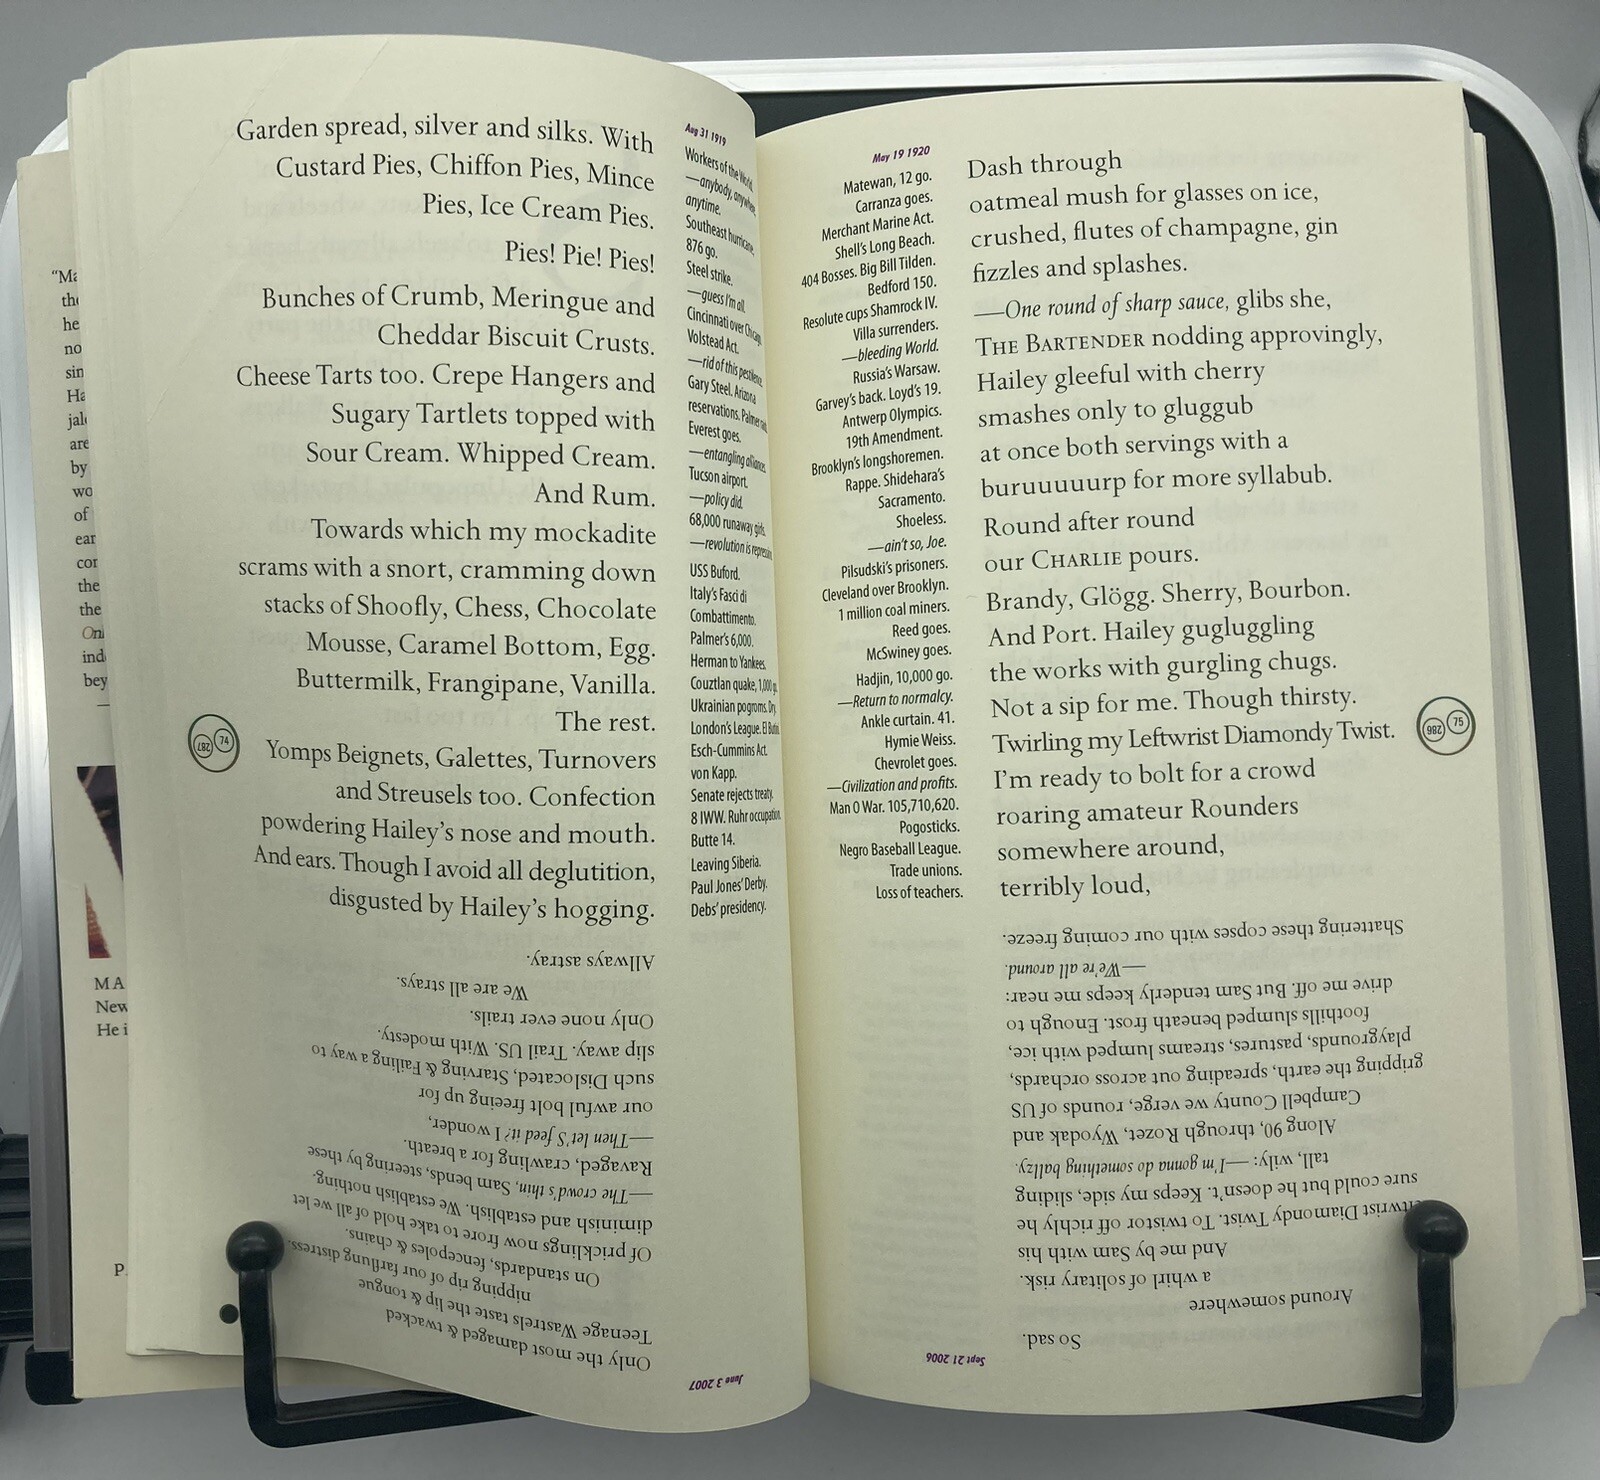 Garden spread, silver and silks. With
Custard Pies, Chiffon Pies, Mince
Pies, Ice Cream Pies.
Pies! Pie! Pies!
Bunches of Crumb, Meringue and
Cheddar Biscuit Crusts.
Cheese Tarts too. Crepe Hangers and
Sugary Tartlets topped with
Sour Cream. Whipped Cream.
And Rum.
Towards which my mockadite
scrams with a snort, cramming down
stacks of Shoofly, Chess, Chocolate
Mousse, Caramel Bottom, Egg.
Buttermilk, Frangipane, Vanilla.
The rest.
Yomps Beignets, Galettes, Turnovers
and Streusels too. Confection
powdering Hailey's nose and mouth.
And ears. Though I avoid all deglutition,
disgusted by Hailey's hogging.
Aug 31 1919
Workers of the World.
—anybody, anywhere,
anytime.
Southeast hurricane,
876 go.
Steel strike.
—guess I'm all.
Cincinnati over Chicago.
Volstead Act.
—rid of this pestilence.
Gary Steel. Arizona
reservations. Palmer
Everest goes.
—entangling alliance.
Tucson airport.
—policy did.
68,000 runaway girls.
—revolution is
USS Buford.
Italy's Fasci di
Combattimento.
Palmer's 6,000.
Herman to Yankees.
Couztlan quake, 1,000
Ukrainian pogroms. Dry.
London's League. El
Esch-Cummins Act.
von Kapp.
Senate rejects treaty.
8 IWW. Ruhr occupation.
Butte 14.
Leaving Siberia.
Paul Jones' Derby.
Debs' presidency.
74
287
June 3 2007
Only the most damaged & twacked
Teenage Wastrels taste the lip & tongue
nipping rip of our farflung distress.
On standards, fencepoles & chains.
Of pricklings now frore to take hold of all we let
diminish and establish. We establish nothing.
—The crowd's thin, Sam bends, steering by these
Ravaged, crawling for a breath.
—Then let'S feed it? I wonder,
our awful bolt freeing up for
such Dislocated, Starving & Failing a way to
slip away. Trail US. With modesty.
Only none ever trails.
We are all strays.
Allways astray.
May 19 1920
Matewan, 12 go.
Carranza goes.
Merchant Marine Act.
Shell's Long Beach.
404 Bosses. Big Bill Tilden.
Bedford 150.
Resolute cups Shamrock IV.
Villa surrenders.
—bleeding World.
Russia's Warsaw.
Garvey's back. Loyd's 19.
Antwerp Olympics.
19th Amendment.
Brooklyn's longshoremen.
Rappe. Shidehara's
Sacramento.
Shoeless.
—ain't so, Joe.
Pilsudski's prisoners.
Cleveland over Brooklyn.
1 million coal miners.
Reed goes.
McSwiney goes.
Hadjin, 10,000 go.
—Return to normalcy.
Ankle curtain. 41.
Hymie Weiss.
Chevrolet goes.
—Civilization and profits.
Man O War. 105,710,620.
Pogosticks.
Negro Baseball League.
Trade unions.
Loss of teachers.
Dash through
oatmeal mush for glasses on ice,
crushed, flutes of champagne, gin
fizzles and splashes.
—One round of sharp sauce, glibs she,
THE BARTENDER nodding approvingly,
Hailey gleeful with cherry
smashes only to gluggub
at once both servings with a
buruuuuurp for more syllabub.
Round after round
our CHARLIE pours.
Brandy, Glögg. Sherry, Bourbon.
And Port. Hailey gugluggling
the works with gurgling chugs.
Not a sip for me. Though thirsty.
Twirling my Leftwrist Diamondy Twist.
I'm ready to bolt for a crowd
roaring amateur Rounders
somewhere around,
terribly loud,
75
286
Sept 21 2006
So sad.
Around somewhere
a whirl of solitary risk.
And me by Sam with his
Diamondy Twist. To twistor off richly he
sure could but he doesn't. Keeps my side, sliding
tall, wily: —I'm gonna do something ballzy.
Along 90, through Rozet, Wyodak and
Campbell County we verge, rounds of US
gripping the earth, spreading out across orchards,
playgrounds, pastures, streams lumped with ice,
foothills slumped beneath frost. Enough to
drive me off. But Sam tenderly keeps me near:
—We're all around.
Shattering these copses with our coming freeze.
"Ma
the
he
no
sin
Ha
jal
are
by
wo
of
ear
con
the
the
Onl
ind
bey
MA
New
He i
P